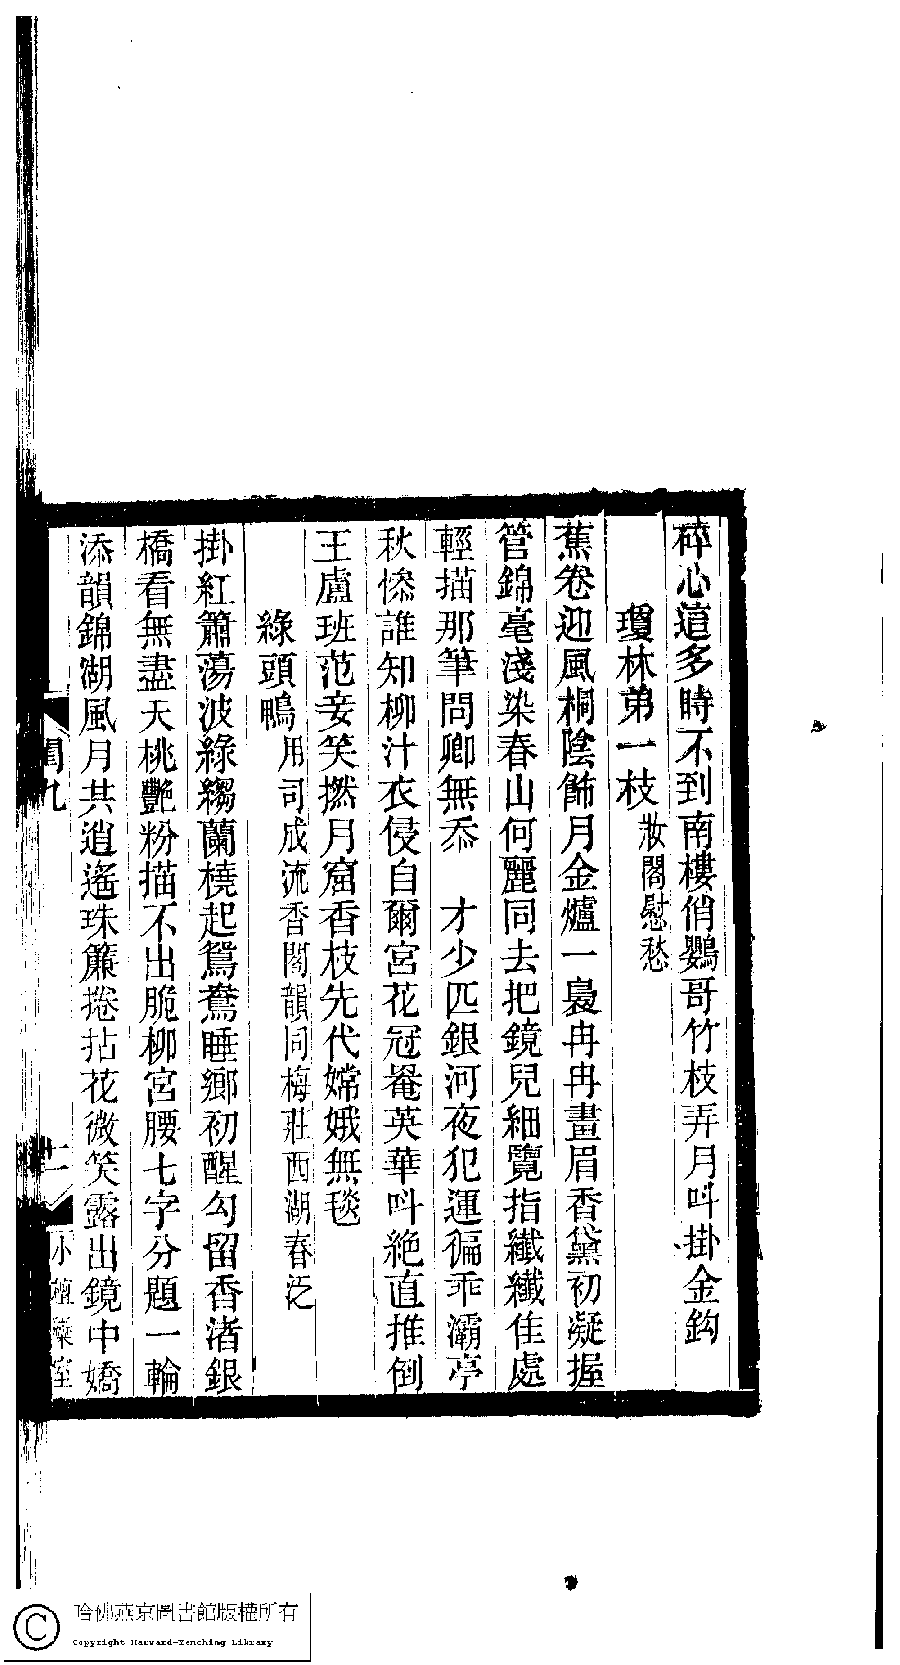 碎心這多時不到南樓俏鸚哥竹枝弄月呌掛金鈎
瓊林弟一枝 妝閣慰愁
蕉卷迎風桐陰篩月金爐一裊冉冉畫眉香黛初凝握
管錦毫淺染春山何麗同去把鏡兒細覽指纖纖佳處
輕描那筆問卿無忝 才少匹銀河夜犯運偏乖灞亭
秋慘誰知柳汁衣侵自爾宮花冠罨英華呌絶直推倒
王盧班范妄笑撚月窟香枝先代嫦娥無毯
綠頭鴨 用司成流香閣韻同梅莊西湖春泛
掛紅簫蕩波綠縐蘭橈起鴛鴦睡鄉初醒勾留香渚銀
橋看無盡天桃艷粉描不出脆柳宮腰七字分題一輪
添韻錦湖風月共逍遙珠簾捲拈花微笑露出鏡中嬌
閨九
十一
小檀欒室
哈佛燕京圖書館版權所有
Copyright Harvard-Yenching Library